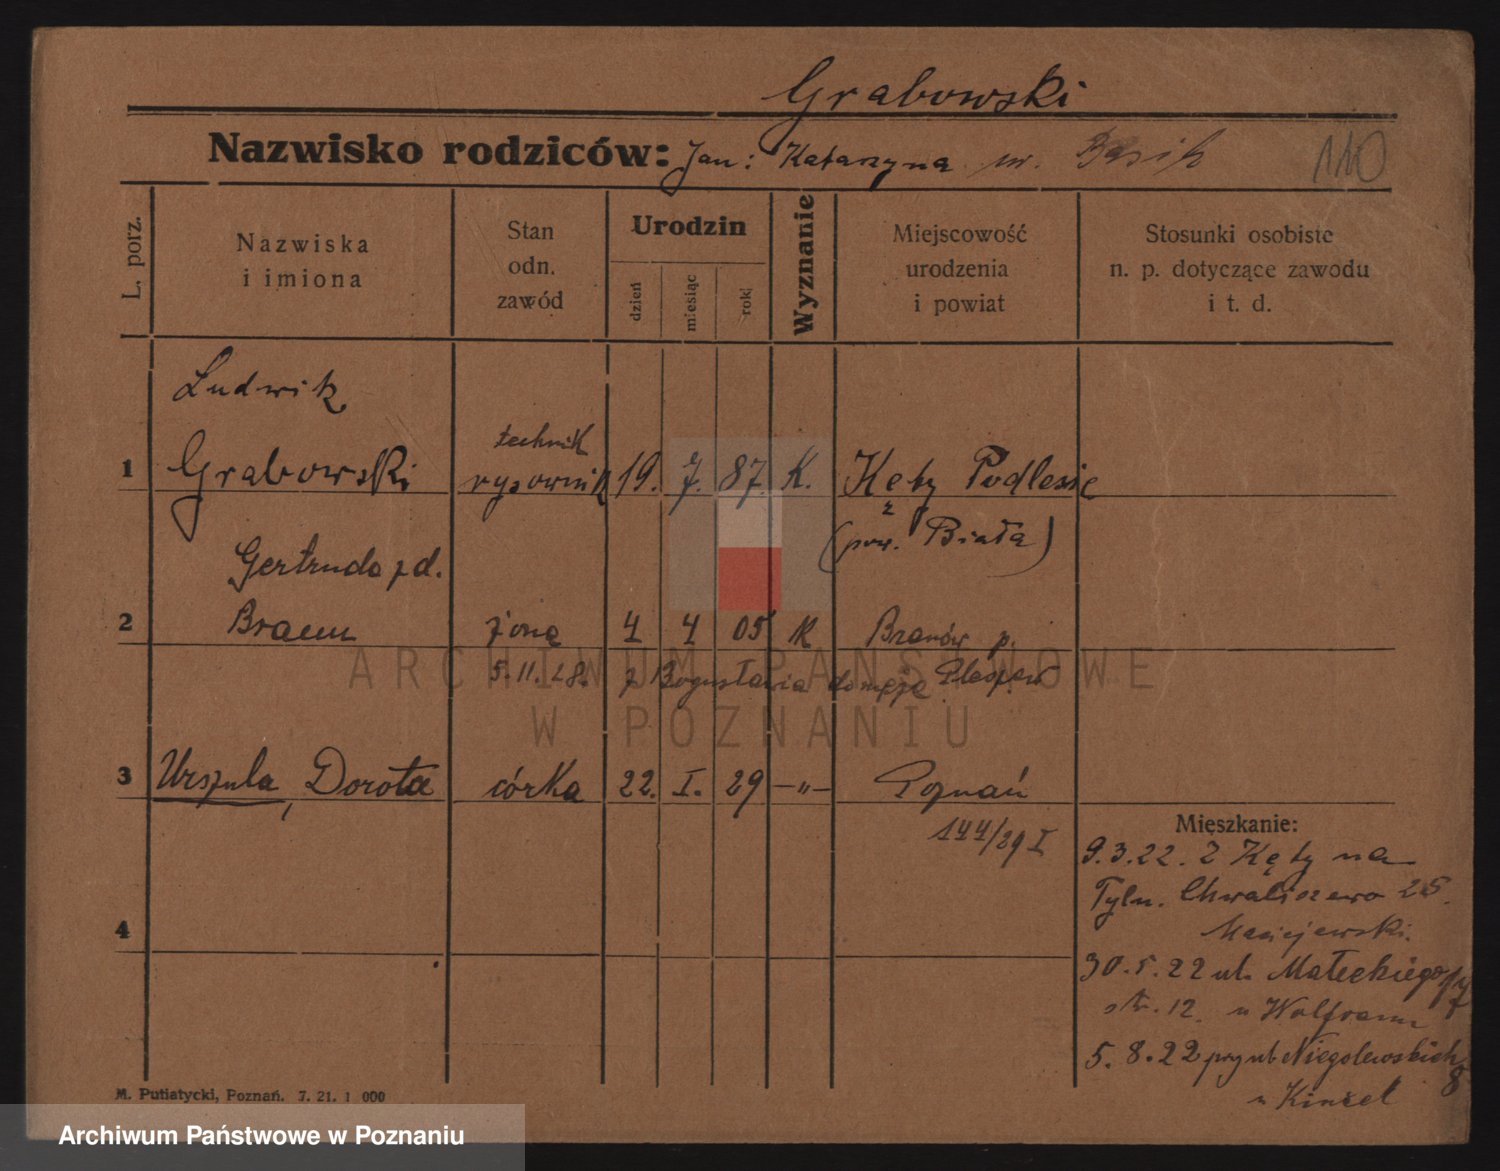 Grabowski
Nazwisko rodziców: Jan : Katarzyna ur.
110
L. porz.
Nazwiska
i imiona
Stan
odn.
zawód
Urodzin
dzień
miesiąc
rok
Wyznanie
Miejscowość
urodzenia
i powiat
Stosunki osobiste
n. p. dotyczące zawodu
i t. d.
Ludwik
technik
1 Grabowski rysownik 19. 7. 87. K. Kęty Podlesie
(pow. Biała)
Gertruda z d.
2 Braun żona 4 4 05 K p.
5.11.28. z Bogusławia do męża Pleszew
3 Urszula, Dorota córka 22. I. 29 —„— Poznań
144/29 I
Mieszkanie:
9.3.22. z Kęty na
Tyln. Chwaliszewo 25.
4
Maciejewski.
30.5.22 ul. Małeckiego 17
str. 12. u Wolfram
5.8.22 przy ul Niegolewskich 8
u
M. Putiatycki, Poznań. 7. 21. 1 000
ARCHIWUM PAŃSTWOWE
W POZNANIU
Archiwum Państwowe w Poznaniu